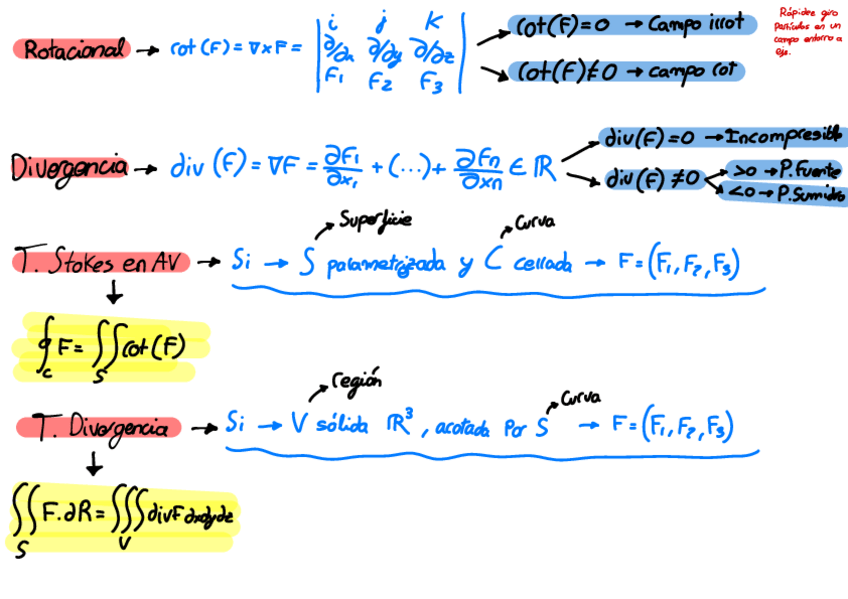 Rotacional → rot(F) = ∇×F = | i j k |
| ∂/∂x ∂/∂y ∂/∂z |
| F₁ F₂ F₃ |
rot(F)=0 → Campo irrot
rot(F)≠0 → campo rot
Rápidez giro
Partículas en un
campo entorno a
eje.
Divergencia → div (F) = ∇F = ∂F₁/∂x₁ + (...) + ∂Fn/∂xn ∈ ℝ
div(F)=0 → Incompresible
div(F)≠0
>0 → P. Fuente
<0 → P. Sumidro
Superficie
Curva
T. Stokes en AV → Si → S parametrizada y C cerrada → F = (F₁, F₂, F₃)
∮c F = ∬s rot(F)
región
Curva
T. Divergencia → Si → V sólida ℝ³, acotada Por S → F = (F₁, F₂, F₃)
∬s F.∂R = ∭v divF dxdydz